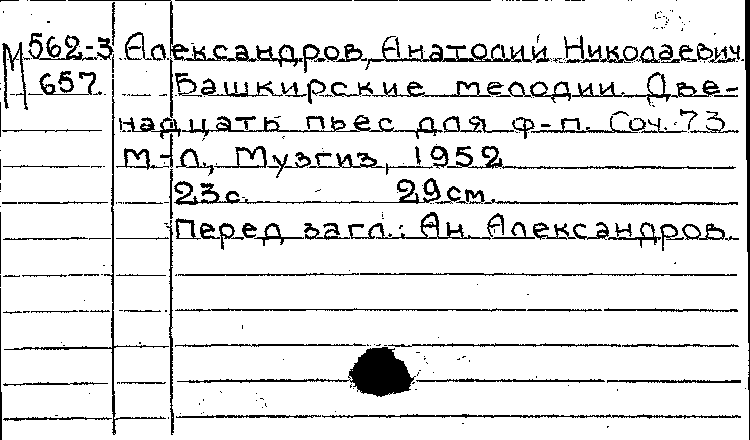 М 562-3 Александров, Анатолий Николаевич
657 Башкирские мелодии. Две-
надцать пьес для ф-п. Соч. 73
М.-Л., Музгиз, 1952
23с. 29см.
Перед загл.: Ан. Александров.